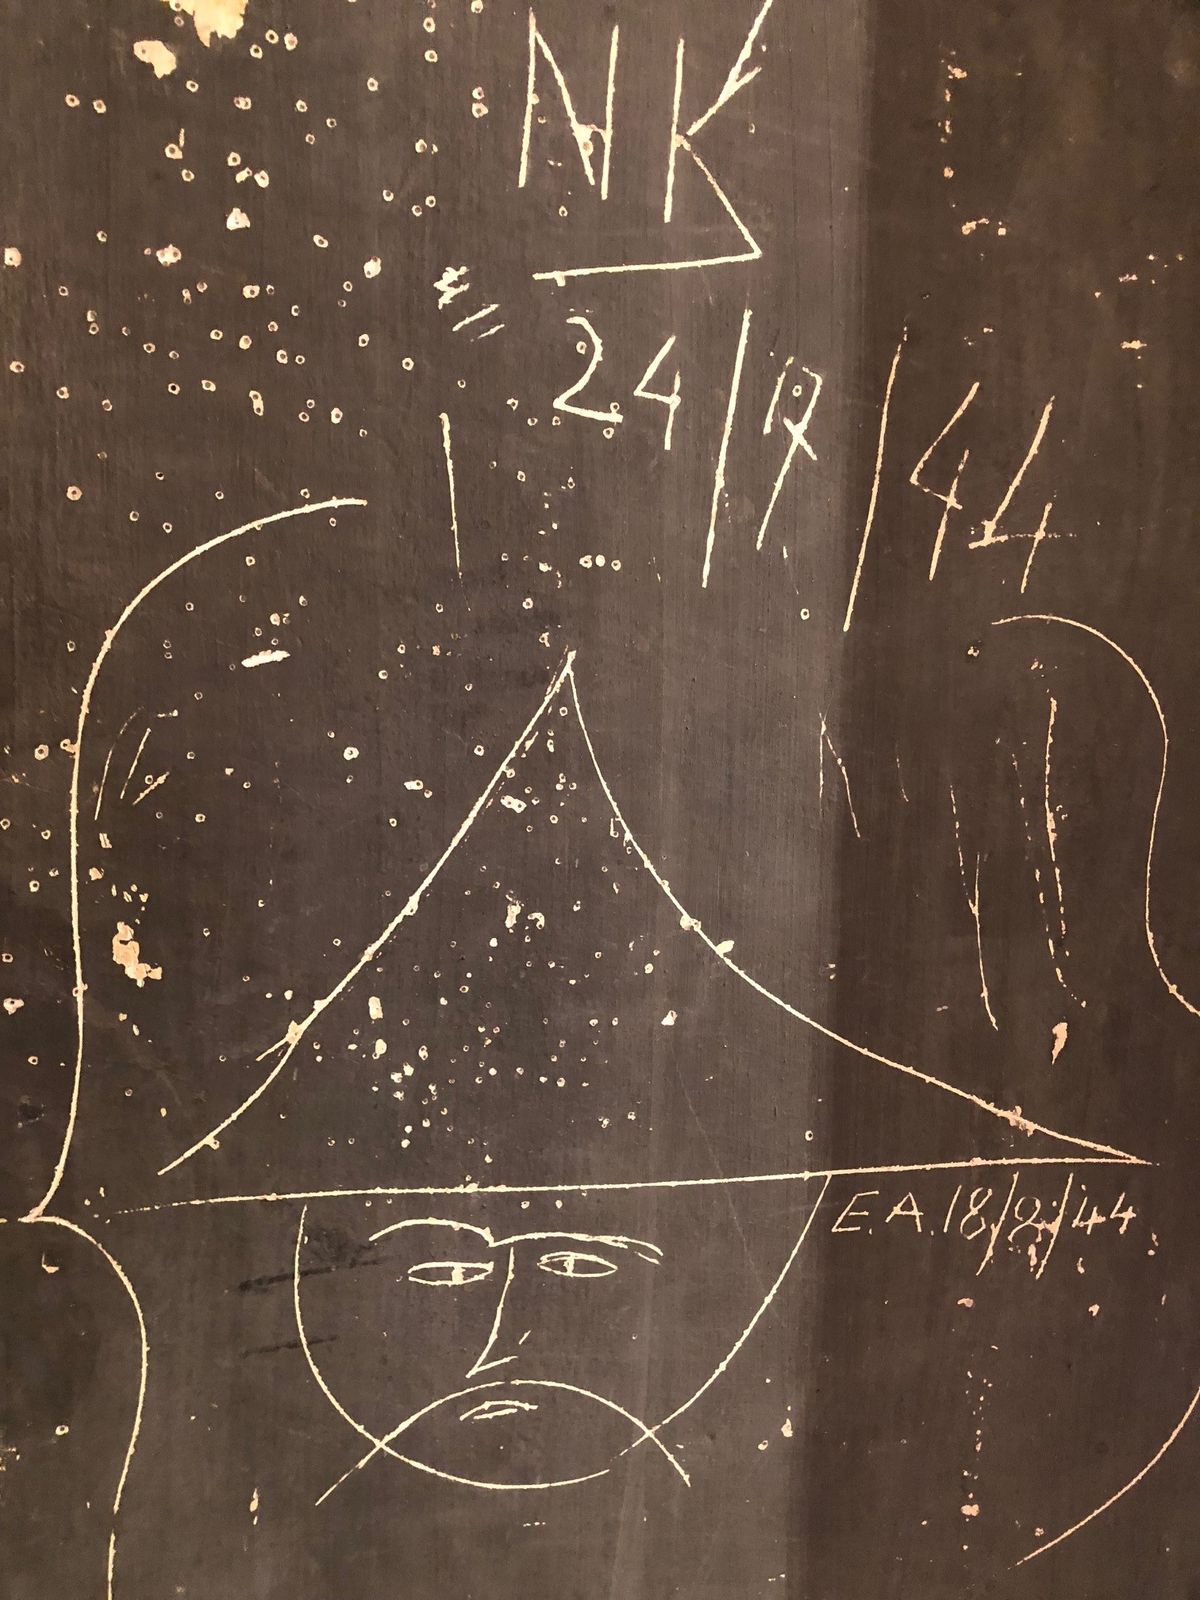 NK
24/9/44
E.A. 18/2/44